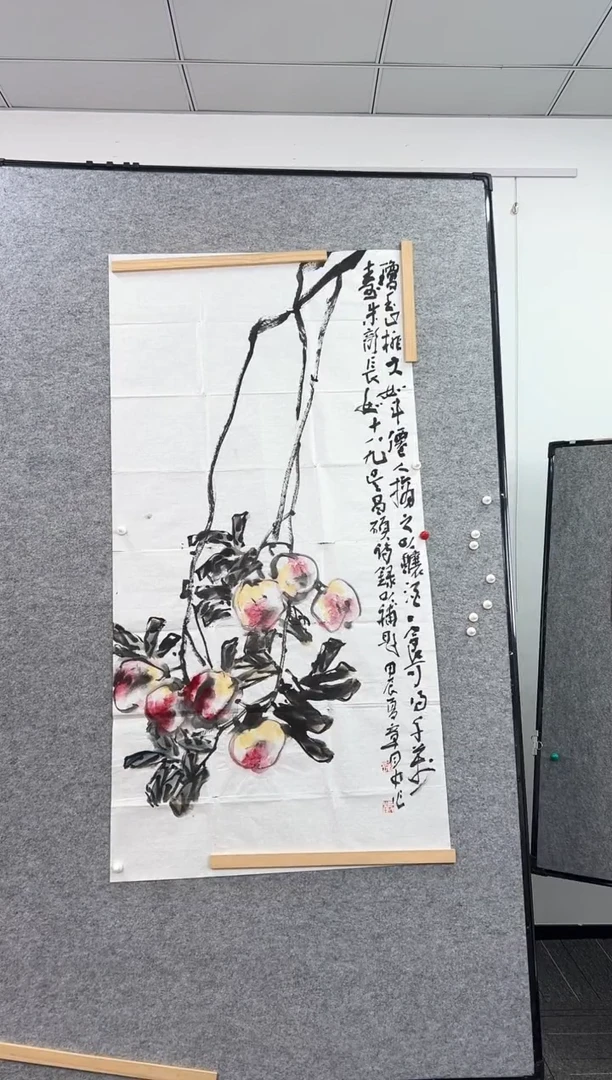 璚玉山桃大如斗僊人摘之以釀酒一食可得千萬
壽朱顏長如十八九吳昌碩詩錄以補題甲辰夏章